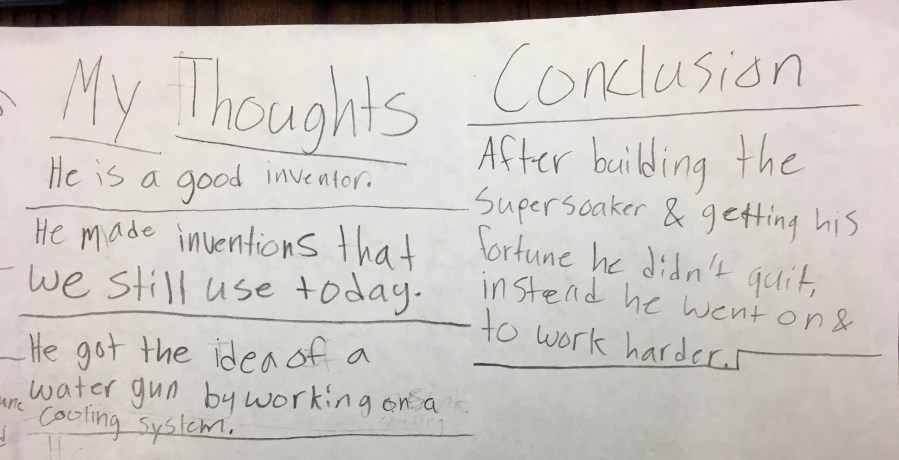 My Thoughts
He is a good inventor.
He made inventions that
we still use today.
He got the idea of a
water gun by working on a
cooling system.
Conclusion
After building the
Supersoaker & getting his
fortune he didn't quit,
instead he went on &
to work harder.